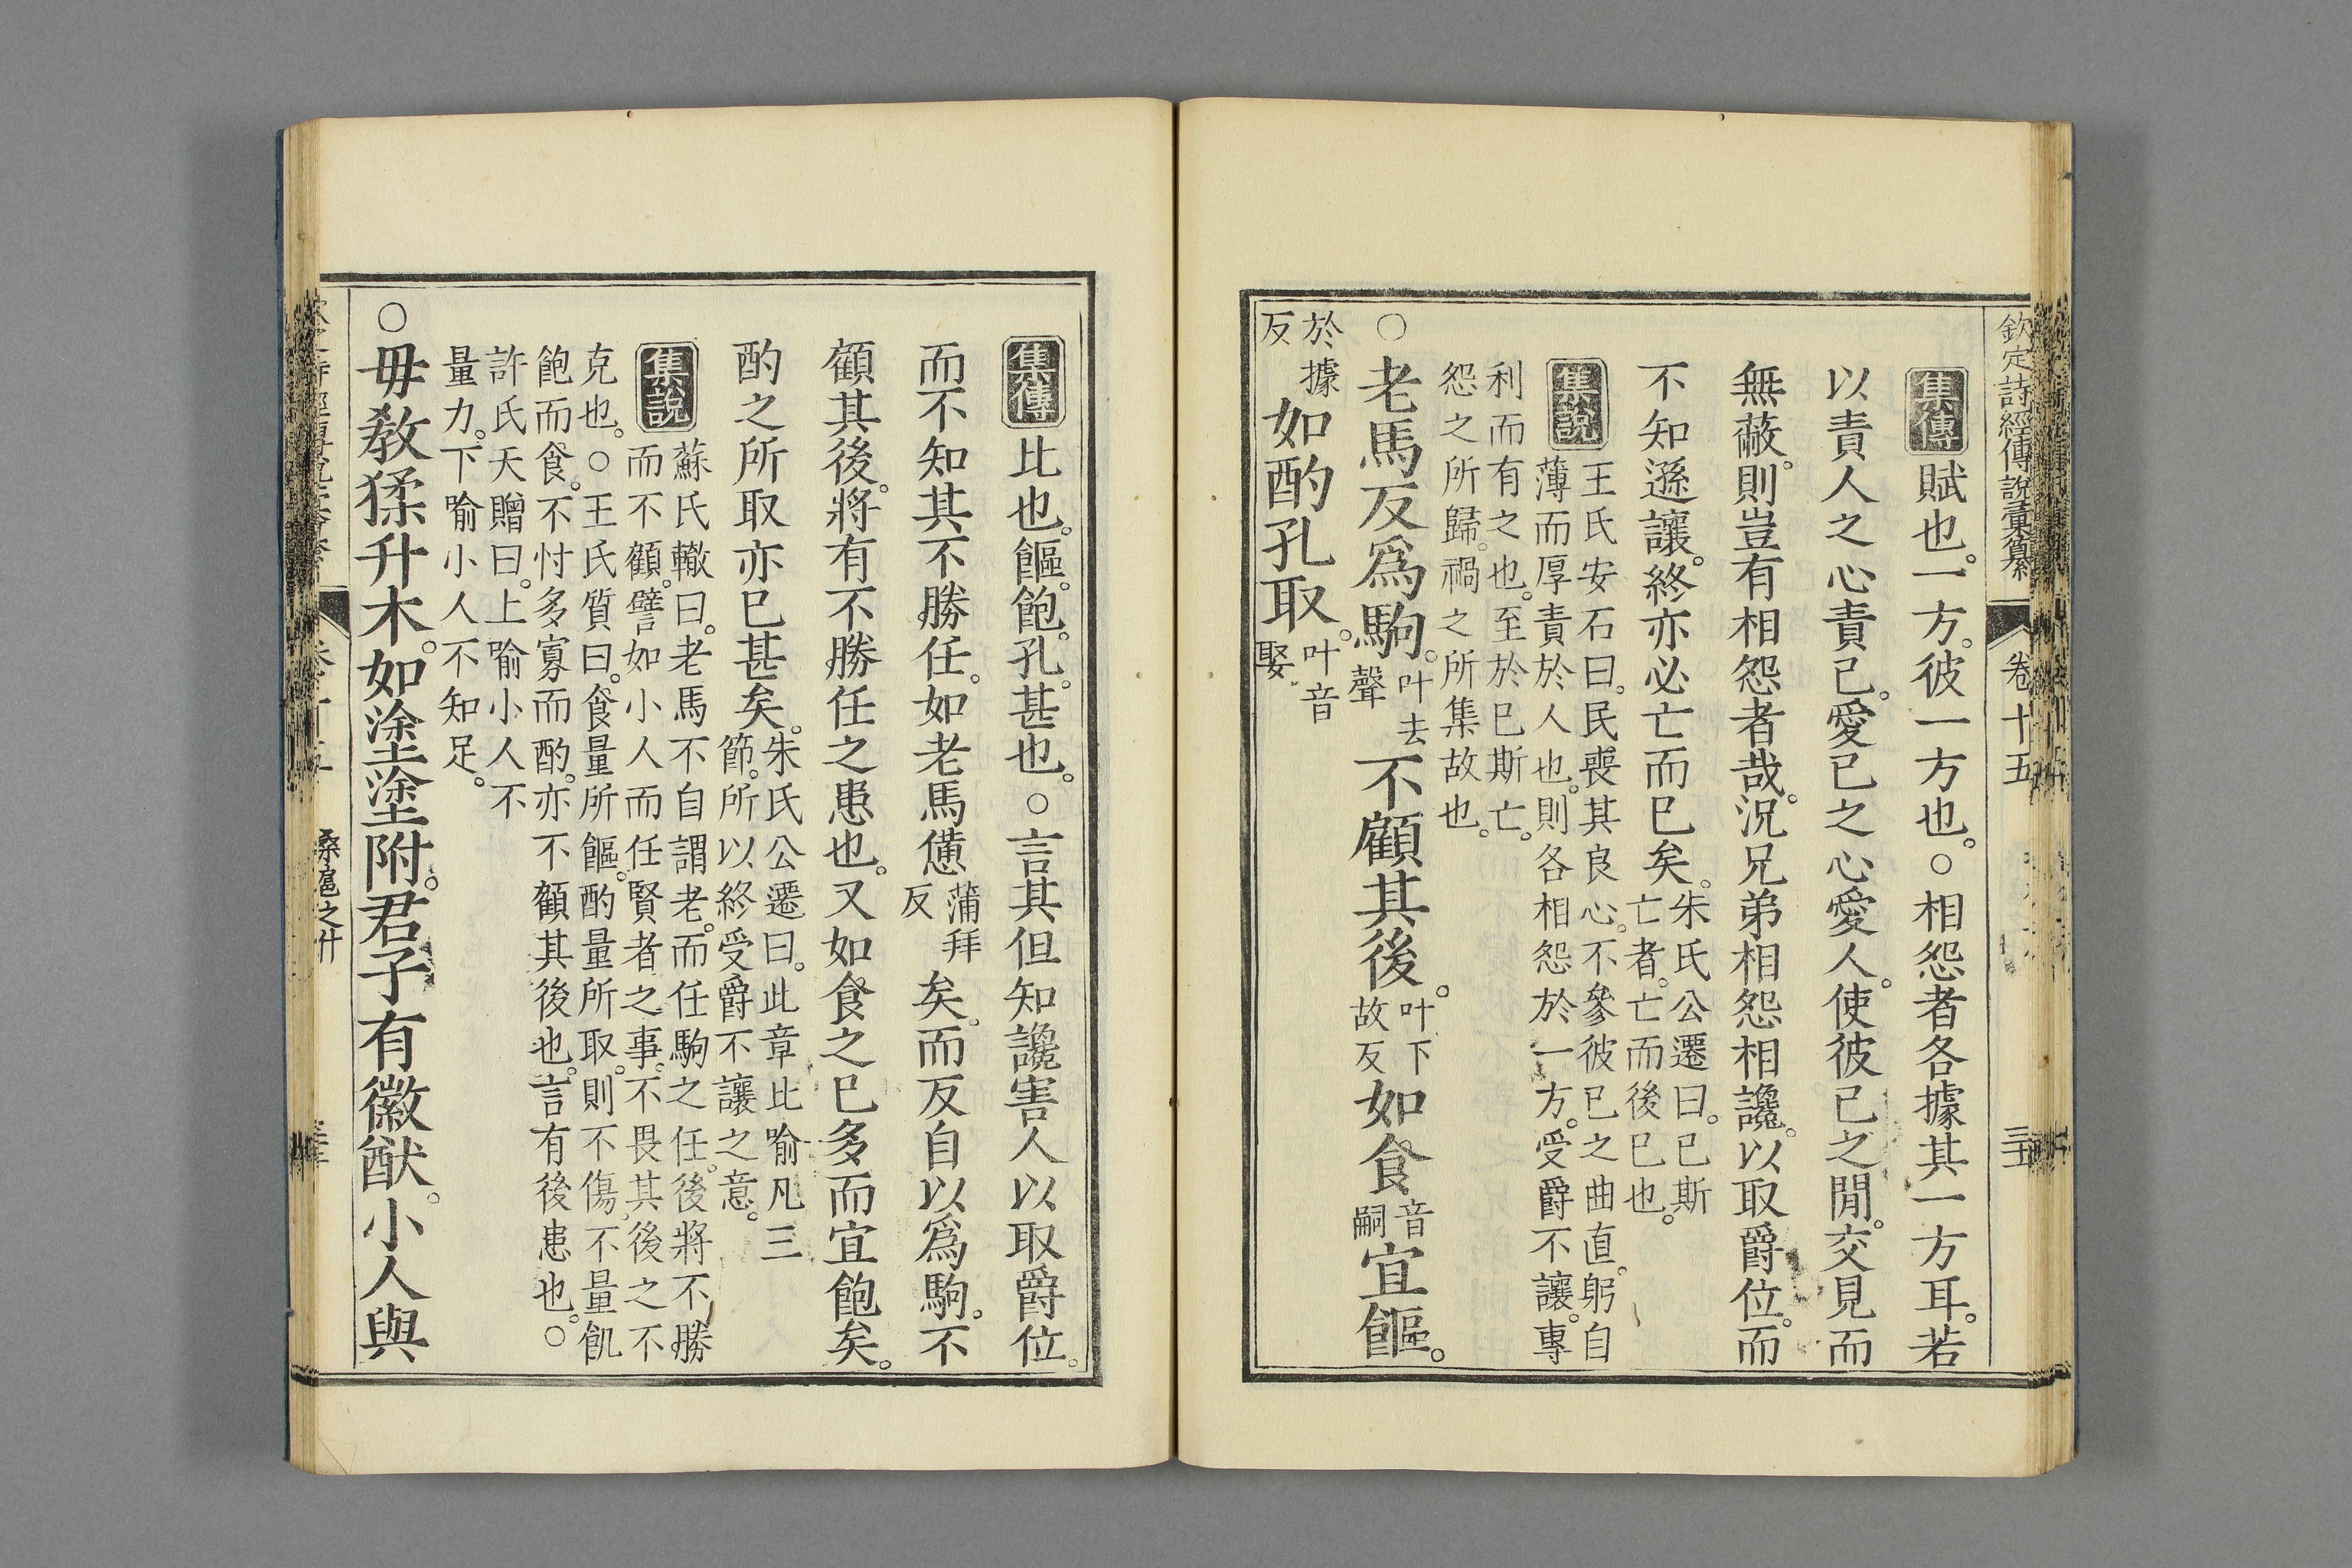 欽定詩經傳說彙纂 卷十五
集傳 賦也。一方。彼一方也。○相怨者各據其一方耳。若
以責人之心責己。愛己之心愛人。使彼己之閒。交見而
無蔽。則豈有相怨者哉。況兄弟相怨相讒。以取爵位。而
不知遜讓。終亦必亡而已矣。朱氏公遷曰。已斯
亡者。亡而後已也。
集說 王氏安石曰。民喪其良心。不參彼己之曲直。躬自
薄而厚責於人也。則各相怨於一方。受爵不讓。專
利而有之也。至於已斯亡。
怨之所歸。禍之所集故也。
○老馬反爲駒。叶去
聲 不顧其後。叶下
故反 如食音
嗣 宜饇。
於據
反 如酌孔取。叶音
娶
集傳 比也。饇。飽。孔。甚也。○言其但知讒害人以取爵位。
而不知其不勝任。如老馬憊蒲拜
反 矣。而反自以爲駒。不
顧其後。將有不勝任之患也。又如食之已多而宜飽矣。
酌之所取亦已甚矣。朱氏公遷曰。此章比喻凡三
節。所以終受爵不讓之意。
集說 蘇氏轍曰。老馬不自謂老。而任駒之任。後將不勝
而不顧。譬如小人而任賢者之事。不畏其後之不
克也。○王氏質曰。食量所饇。酌量所取。則不傷。不量飢
飽而食。不忖多寡而酌。亦不顧其後也。言有後患也。○
許氏天贈曰。上喻小人不
量力。下喻小人不知足。
○毋敎猱升木。如塗塗附。君子有徽猷。小人與
桑扈之什